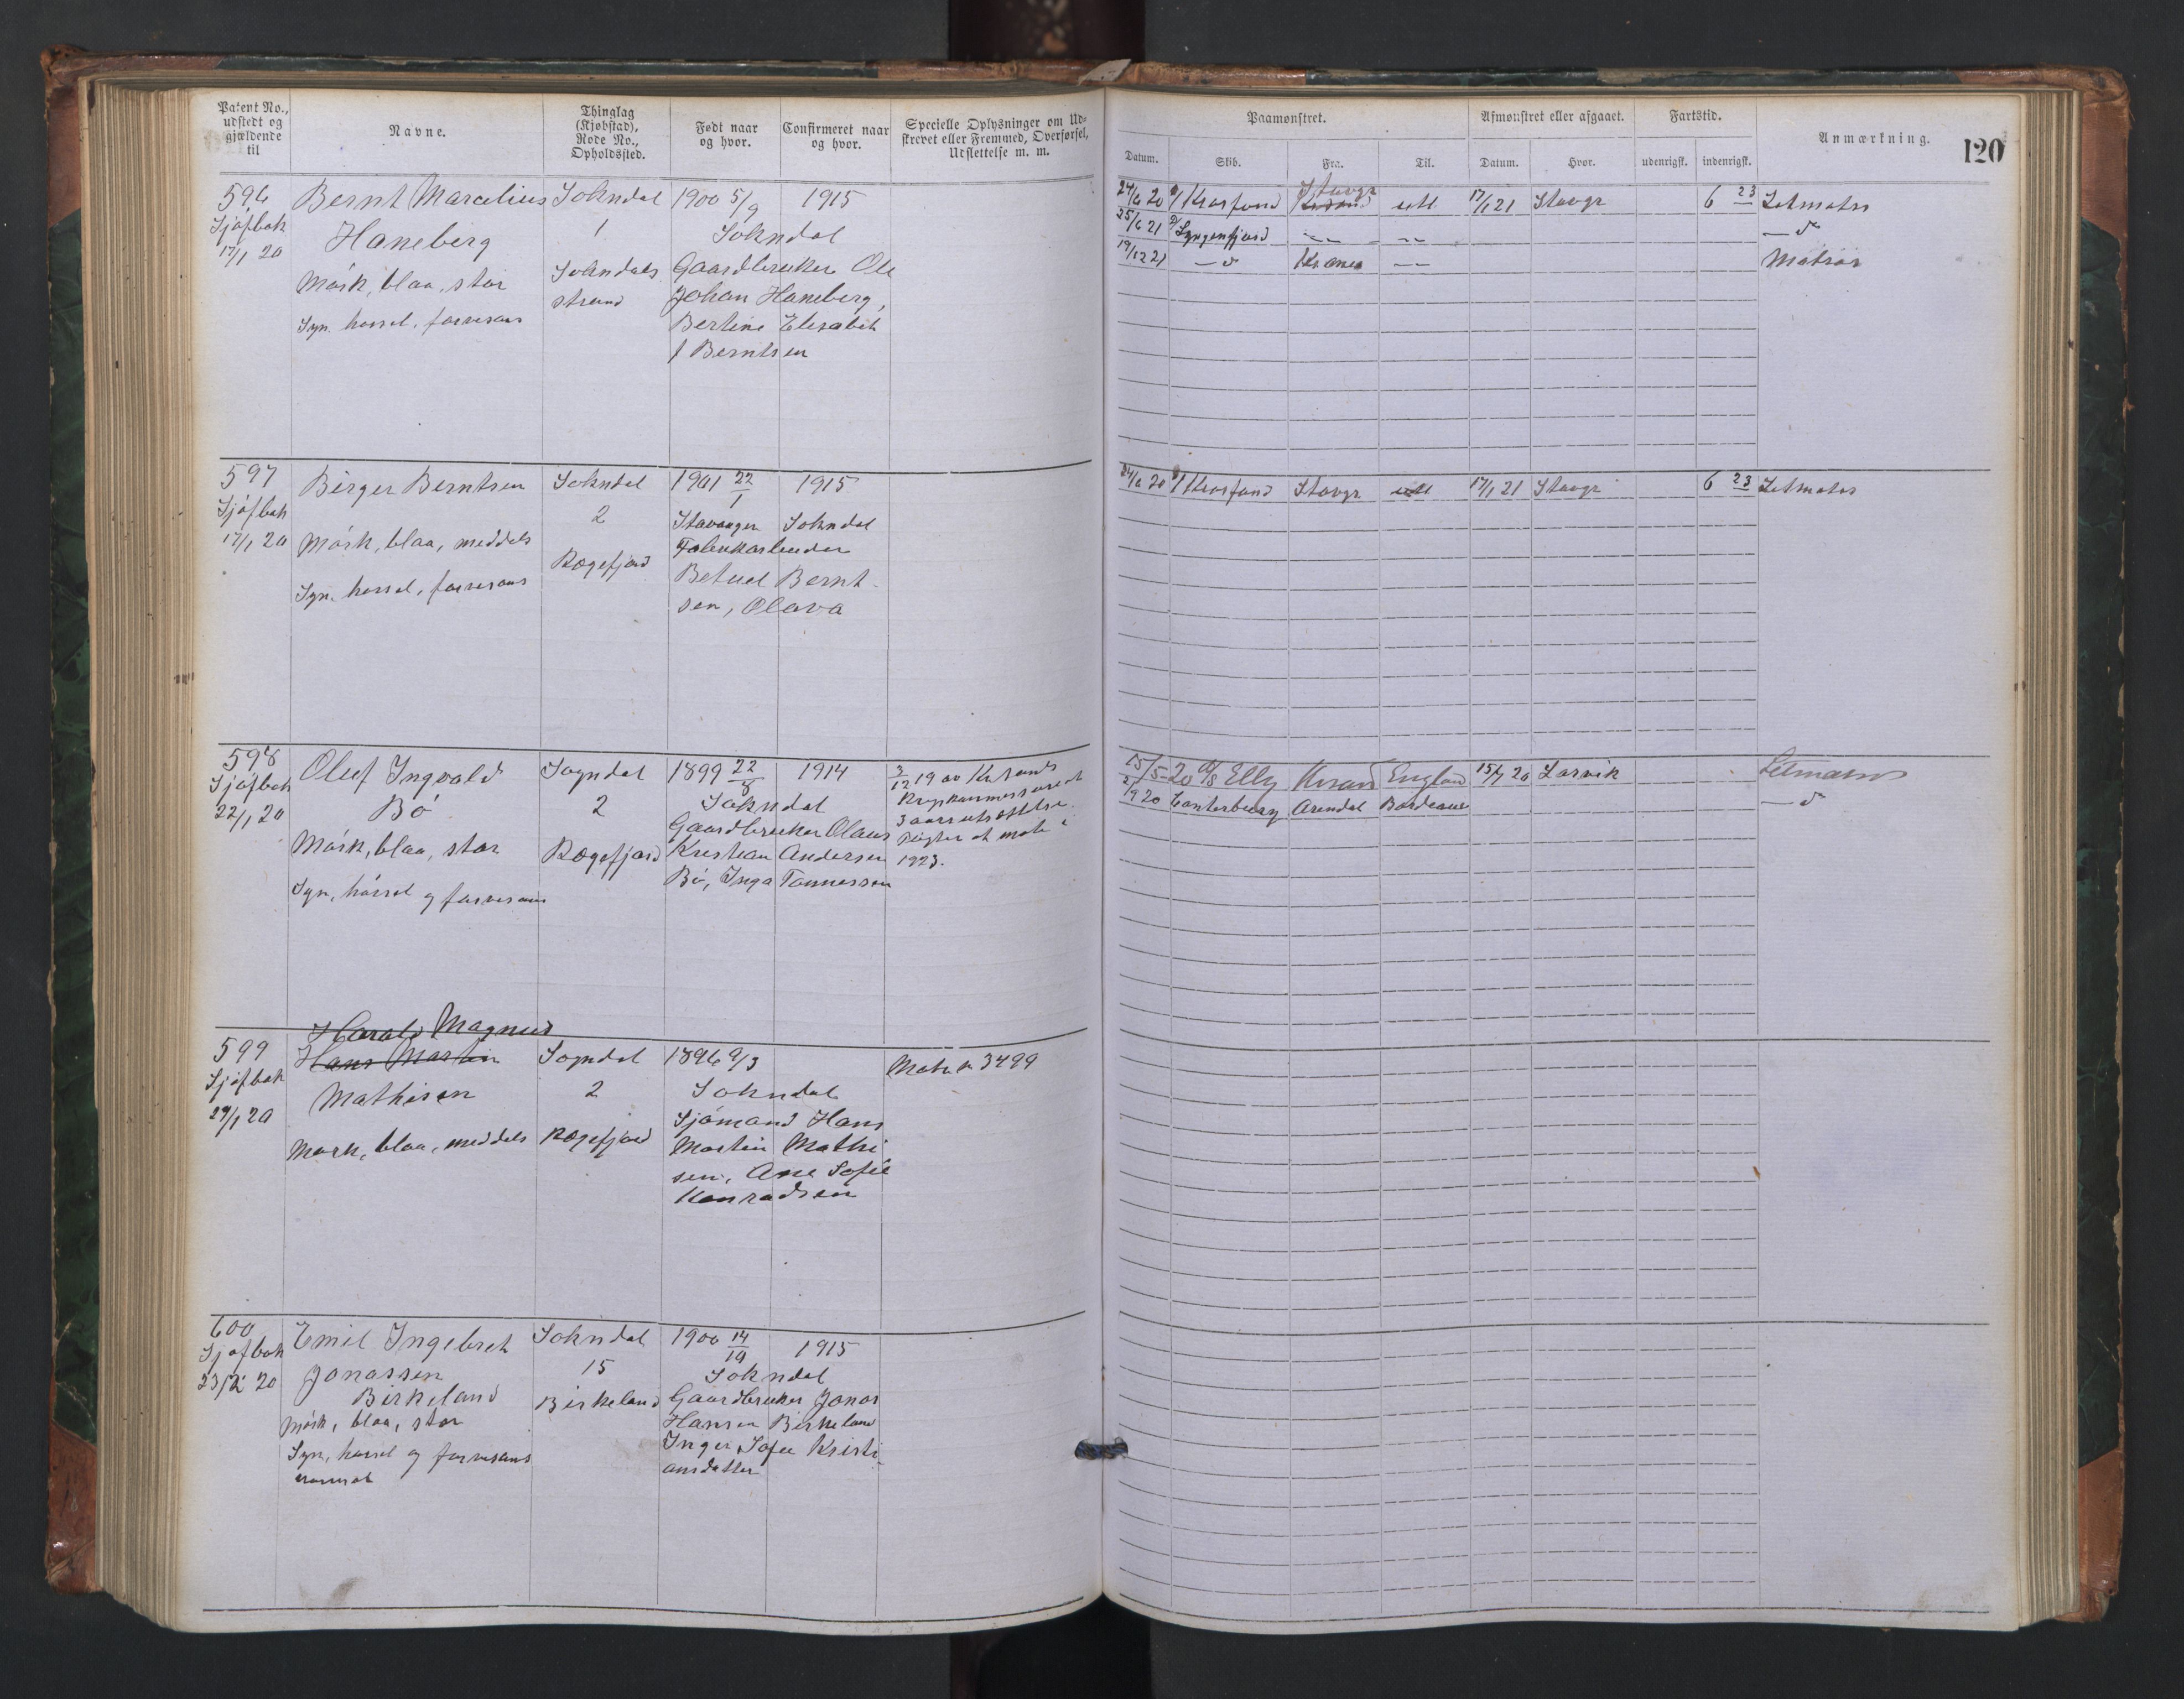 Patent No., udstedt og gjældende til
Navne.
Thinglag (Kjøbstad), Rode No., Opholdssted.
Født naar og hvor.
Confirmeret naar og hvor.
Specielle Oplysninger om Udskrevet eller Fremmed, Overførsel, Udslettelse m. m.
Paamønstret.
Afmønstret eller afgaaet.
Fartstid.
Anmærkning.
120
Datum.
Skib.
Fra.
Til.
Datum.
Hvor.
udenrigsk.
indenrigsk.
596 Bernt Marcelius Sokndal 1900 5/9 1915
Sjøfbok Haneberg 1 Sokndal
17/1 20
Mørk, blaa, stor Sokndals strand Gaardbruker Ole
Johan Haneberg,
Syn, hørsel, farvesans Bertine Elisabet
f Berntsen
24/6 20 Stavgr 17/1 21 Stavgr 6 23 Letmatr
25/6 21 Lyngenfjord
19/12 21 Matros
597 Birger Berntsen Sokndal 1901 22/1 1915
Sjøfbok 2 Stavanger Sokndal
17/1 20 Mørk, blaa, meddels
Rægefjord Betuel Bernt
Syn, hørsel, farvesans sen, Olava
24/6 20 Stavgr 17/1 21 Stavgr 6 23 Letmatr
598 Oluf Ingvald Sogndal 1899 22/8 1914
Sjøfbok Bø 2 Sokndal
22/1 20 Gaardbruker Olaus
Mørk, blaa, stor Rægefjord Kristian Andersen
Bø, Inga Tønnessen
Syn, hørsel og farvesans
3/12 19 av Kr.sands
3 aars utsættelse.
Pligter at møte i
1923.
15/5-20 Elly Krsand England 15/7 20 Larvik Letmatros
2/9 20 Canterbury Arendal Bordeaux
Harald Magnus
599 Hans Martin Sogndal 1896 9/3 3499
Sjøfbok Mathisen 2 Sokndal
29/1 20 Sjømand Hans
Mørk, blaa, meddels Rægefjord Martin Mathi
sen, Ane Sofie
Konradsen
600 Emil Ingebret Sokndal 1900 1915
Sjøfbok Jonassen 15 Sokndal
20 Birkeland Birkeland Gaardbruker Jonas
Mørk, blaa, stor Hansen Birkeland
Syn, hørsel og farvesans Inger Sofie Kristi
normal ansdatter